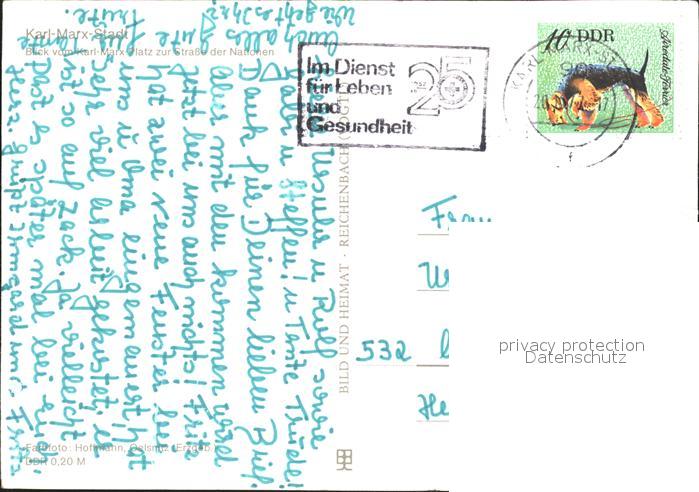 Karl-Marx-Stadt
Blick vom Karl-Marx-Platz zur Straße der Nationen
Im Dienst
für Leben
und
Gesundheit
25
10 DDR
Airedale-Terrier
KARL-MARX-ST
f
Frau
532
He
privacy protection
Datenschutz
BILD UND HEIMAT · REICHENBACH (VOGTL
Ursula u Rolf sowie
Steffen! u Tante Trudel
Dank für Deinen lieben Brief.
alles mit den kommen wird
jetzt bei uns auch nichts! Fritz
hat zwei neue Fenster bei
uns u Oma eingemauert, hat
sehr viel Arbeit gekostet, er
ist so auf Zack. Ja vielleicht
paßt es später mal bei euch.
Herz. grüßt Irmgard und Fritz.
auch alles gute
Wie geht es Ihr?
Farbfoto: Hoffmann, Oelsnitz (Erzgeb.)
DDR 0,20 M